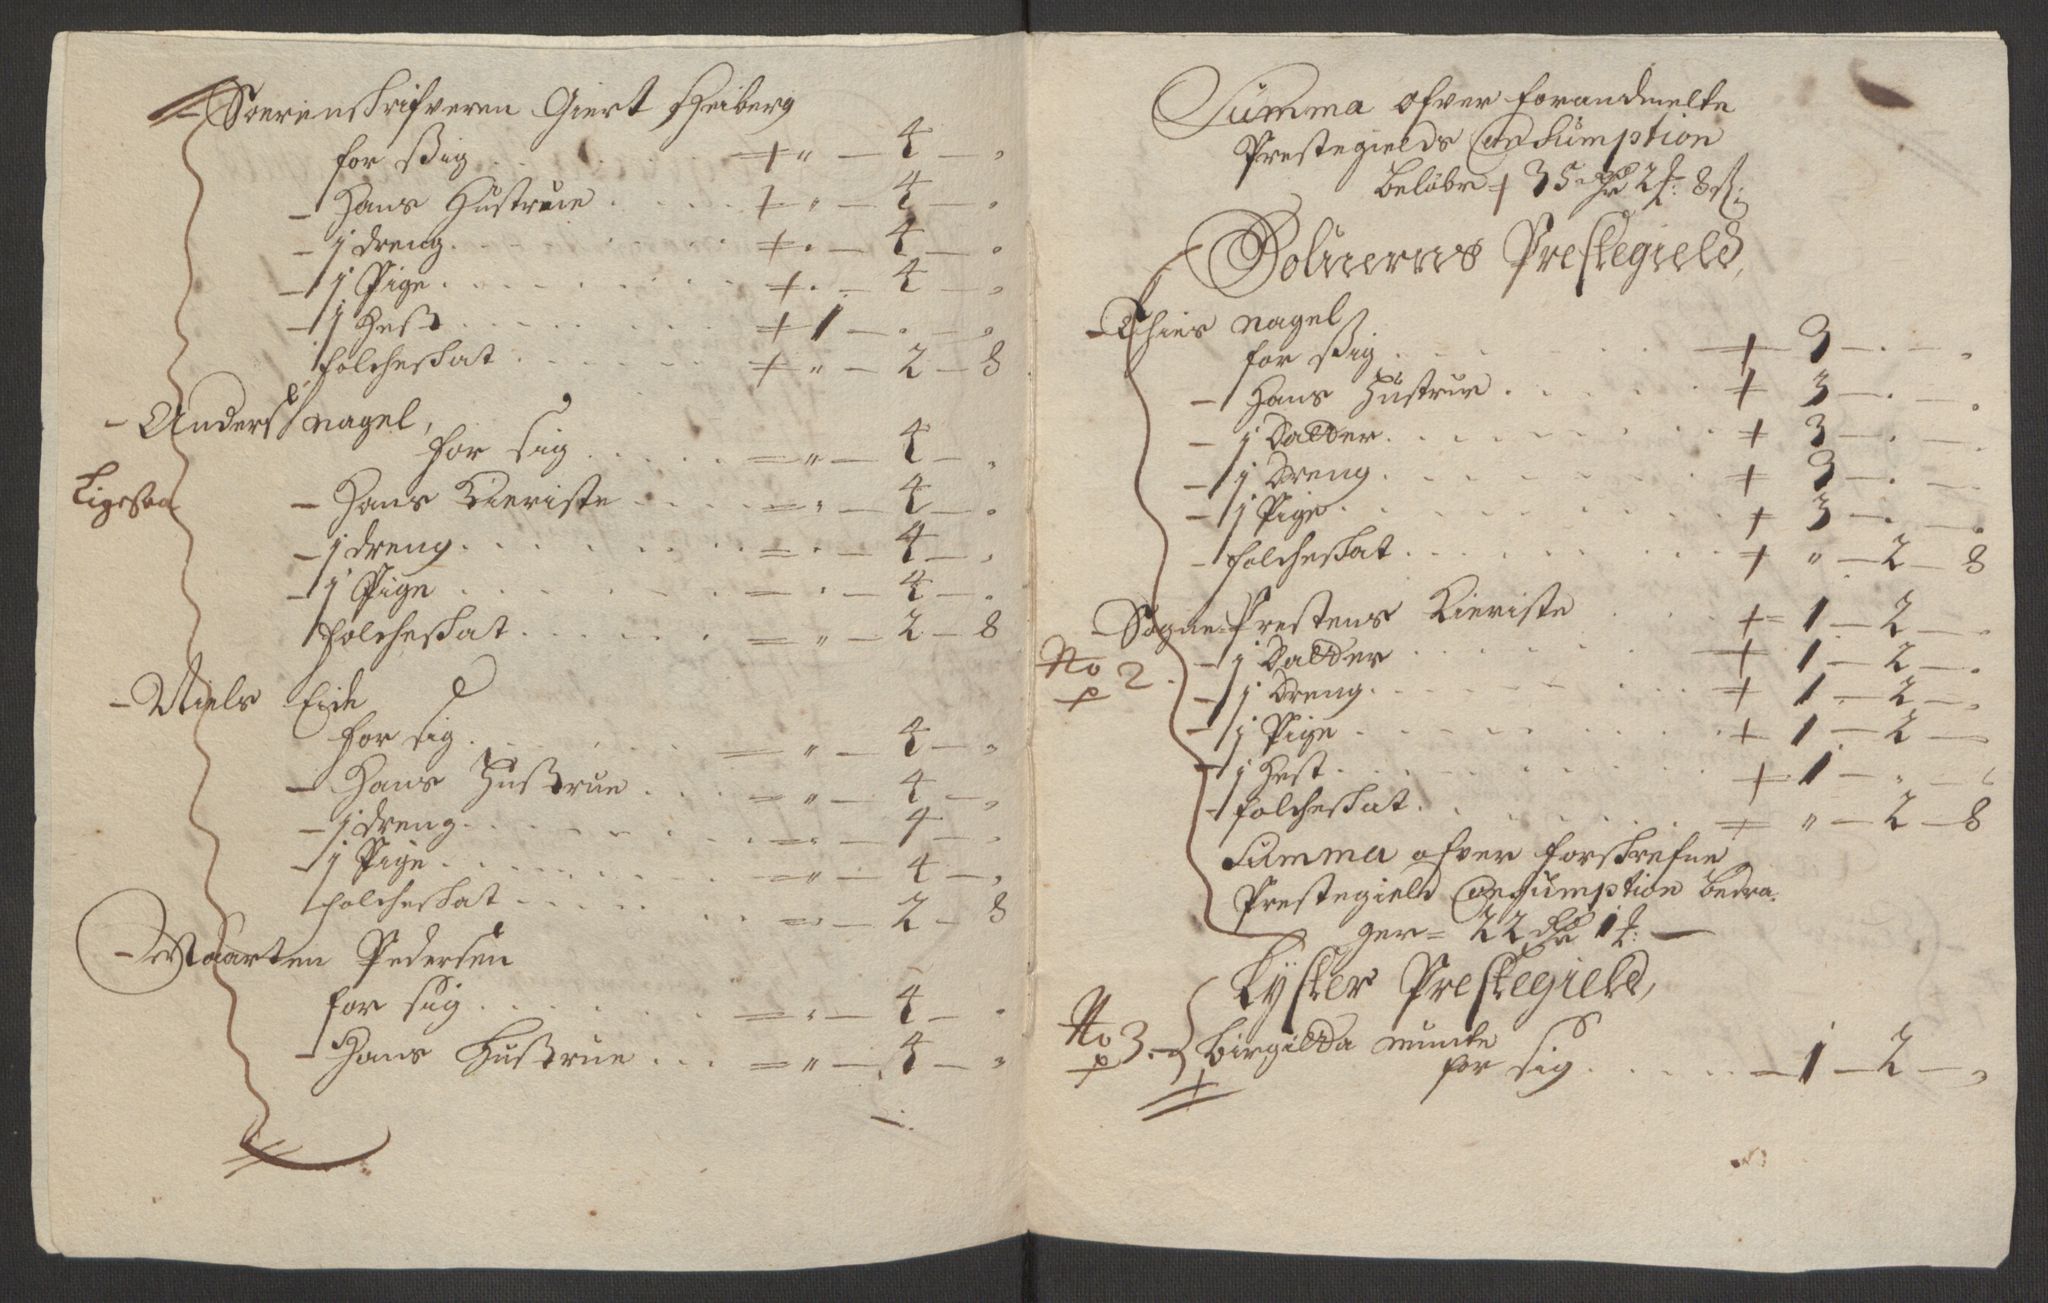 Soerenskrifveren Giert Heiberg
for ßig . . . + " — 4 — "
— Hans Hustrue . . . + " — 4 — "
— 1 dreng . . . + " — 4 — "
— 1 Pige . . . + " — 4 — "
— 1 Hest . . . + 1 — " — "
folcheskat . . . + " — 2 — 8
— Anders Nagel,
for sig . . . = " — 4 — "
Ligesaa
— Hans Kieriste . . . = " — 4 — "
— 1 dreng . . . = " — 4 — "
— 1 Pige . . . = " — 4 — "
folcheskat . . . = " — 2 — 8
— Niels Eide
for sig . . . = " — 4 — "
— Hans Hustrue . . . = " — 4 — "
— 1 dreng . . . = " — 4 — "
— 1 Pige . . . = " — 4 — "
folcheskat . . . = " — 2 — 8
— Maarten Pedersen
for sig . . . = " — 4 — "
— Hans Hustrue . . . = " — 4 — "
Summa ofver forandmelte
Prestegields Consumption
beløbr + 35 Rdr 2 ƒ: 8 ß:
Solverns Prestegield,
— Thies Nagel
for ßig . . . + 3 — " — "
— Hans Hustrue . . . + 3 — " — "
— 1 Datter . . . + 3 — " — "
— 1 Dreng . . . + 3 — " — "
— 1 Pige . . . + 3 — " — "
— folcheskat . . . + " — 2 — 8
— Sogne-Prestens Kieriste . . . + 1 — 2 — "
No 2.
— 1 Datter . . . + 1 — 2 — "
— 1 Dreng . . . + 1 — 2 — "
— 1 Pige . . . + 1 — 2 — "
— 1 Hest . . . + 1 — " — "
— folcheskat . . . = " — 2 — 8
Summa ofver forskrefne
Prestegield Consumption bedra-
ger = 22 Rdr 1 ƒ: —
Lyster Prestegield,
No 3. — Birgitta Munte
for sig . . . — 1 — 2 — "